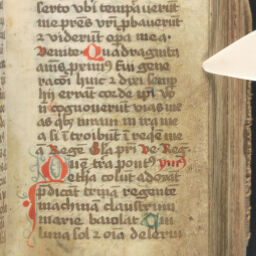 serto vbi temptauerūt
me pr̄es vr̄i ꝓbauerūt
⁊ viderūt oꝑa mea.
Venite. Quadraginta
annis proximꝰ fui gene
racōi huic ⁊ dixi semꝑ
hij errāt corde ipi vō
nō cognouerūt vias me
as qͥbꝫ iuraui in ira me
a si ītroibūt ī reqͥem me
a Rege Gl̄a pr̄i
Quē tra pontꝰ ymnꝰ
ethra colūt adorāt
p̄dicāt trinā regentē
machinā claustrum
marie baiolat Cui
luna sol ⁊ oīa deseruī